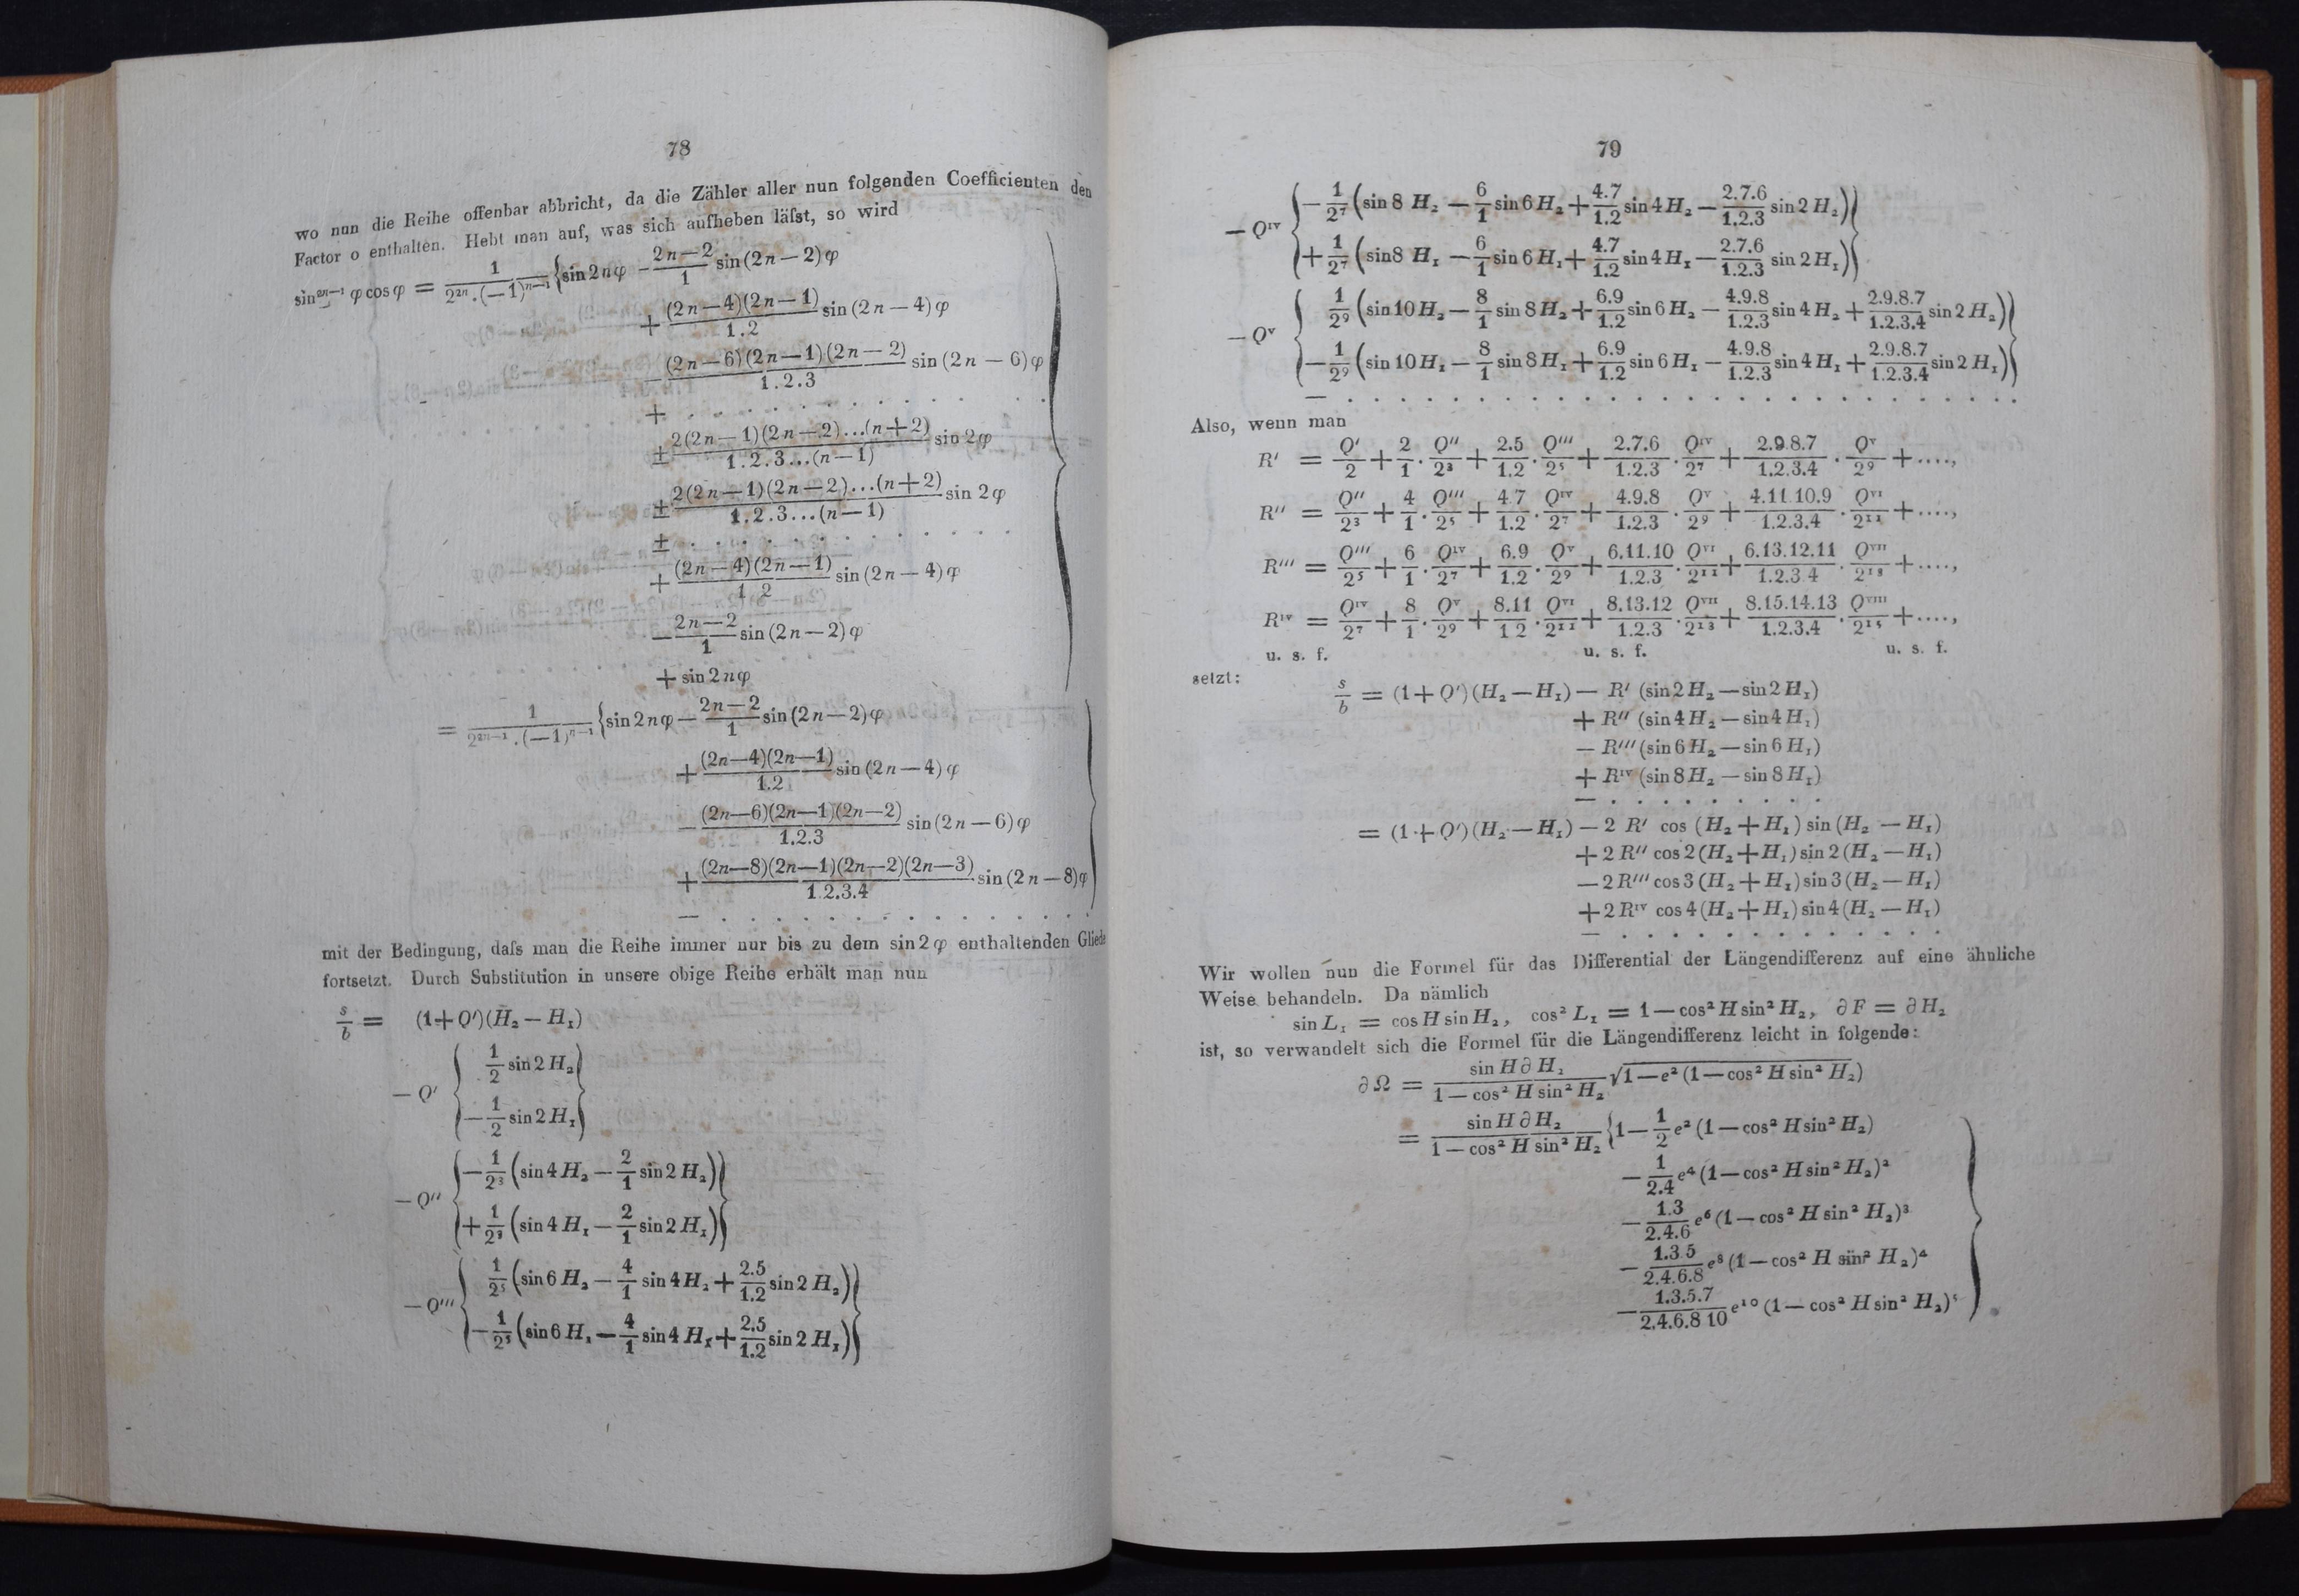 78
wo nun die Reihe offenbar abbricht, da die Zähler aller nun folgenden Coefficienten den
Factor o enthalten. Hebt man auf, was sich aufheben läſst, so wird
sin²ⁿ⁻¹ φ cos φ = 1/(2²ⁿ.(—1)ⁿ⁻¹) {sin 2nφ — (2n—2)/1 sin(2n—2)φ
+ (2n—4)(2n—1)/1.2 sin(2n—4)φ
— (2n—6)(2n—1)(2n—2)/1.2.3 sin(2n—6)φ
+ . . . . . . . . . . . .
± 2(2n—1)(2n—2)...(n+2)/1.2.3...(n—1) sin 2φ
± 2(2n—1)(2n—2)...(n+2)/1.2.3...(n—1) sin 2φ
± . . . . . . . . . . . .
+ (2n—4)(2n—1)/1 2 sin(2n—4)φ
— (2n—2)/1 sin(2n—2)φ
+ sin 2nφ
= 1/(2²ⁿ⁻¹.(—1)ⁿ⁻¹) {sin 2nφ — (2n—2)/1 sin(2n—2)φ
+ (2n—4)(2n—1)/1.2 sin(2n—4)φ
— (2n—6)(2n—1)(2n—2)/1.2.3 sin(2n—6)φ
+ (2n—8)(2n—1)(2n—2)(2n—3)/1.2.3.4 sin(2n—8)φ
— . . . . . . . . . . . . .
mit der Bedingung, daſs man die Reihe immer nur bis zu dem sin 2φ enthaltenden Gliede
fortsetzt. Durch Substitution in unsere obige Reihe erhält man nun
s/b = (1+Q′)(H₂—H₁)
— Q′ { 1/2 sin 2H₂
—1/2 sin 2H₁ }
— Q″ { —1/2³ (sin 4H₂ — 2/1 sin 2H₂)
+1/2³ (sin 4H₁ — 2/1 sin 2H₁) }
— Q‴ { 1/2⁵ (sin 6H₂ — 4/1 sin 4H₂ + 2.5/1.2 sin 2H₂)
—1/2⁵ (sin 6H₁ — 4/1 sin 4H₁ + 2.5/1.2 sin 2H₁) }
79
— Qᴵⱽ { —1/2⁷ (sin 8H₂ — 6/1 sin 6H₂ + 4.7/1.2 sin 4H₂ — 2.7.6/1.2.3 sin 2H₂)
+1/2⁷ (sin 8H₁ — 6/1 sin 6H₁ + 4.7/1.2 sin 4H₁ — 2.7.6/1.2.3 sin 2H₁) }
— Qⱽ { 1/2⁹ (sin 10H₂ — 8/1 sin 8H₂ + 6.9/1.2 sin 6H₂ — 4.9.8/1.2.3 sin 4H₂ + 2.9.8.7/1.2.3.4 sin 2H₂)
—1/2⁹ (sin 10H₁ — 8/1 sin 8H₁ + 6.9/1.2 sin 6H₁ — 4.9.8/1.2.3 sin 4H₁ + 2.9.8.7/1.2.3.4 sin 2H₁) }
— . . . . . . . . . . . . . . . . . . . .
Also, wenn man
R′ = Q′/2 + 2/1 . Q″/2³ + 2.5/1.2 . Q‴/2⁵ + 2.7.6/1.2.3 . Qᴵⱽ/2⁷ + 2.9.8.7/1.2.3.4 . Qⱽ/2⁹ + ....,
R″ = Q″/2³ + 4/1 . Q‴/2⁵ + 4.7/1.2 . Qᴵⱽ/2⁷ + 4.9.8/1.2.3 . Qⱽ/2⁹ + 4.11.10.9/1.2.3.4 . Qⱽᴵ/2¹¹ + ....,
R‴ = Q‴/2⁵ + 6/1 . Qᴵⱽ/2⁷ + 6.9/1.2 . Qⱽ/2⁹ + 6.11.10/1.2.3 . Qⱽᴵ/2¹¹ + 6.13.12.11/1.2.3.4 . Qⱽᴵᴵ/2¹³ + ....,
Rᴵⱽ = Qᴵⱽ/2⁷ + 8/1 . Qⱽ/2⁹ + 8.11/1 2 . Qⱽᴵ/2¹¹ + 8.13.12/1.2.3 . Qⱽᴵᴵ/2¹³ + 8.15.14.13/1.2.3.4 . Qⱽᴵᴵᴵ/2¹⁵ + ....,
u. s. f. u. s. f. u. s. f.
setzt:
s/b = (1+Q′)(H₂—H₁) — R′ (sin 2H₂ — sin 2H₁)
+ R″ (sin 4H₂ — sin 4H₁)
— R‴ (sin 6H₂ — sin 6H₁)
+ Rᴵⱽ (sin 8H₂ — sin 8H₁)
— . . . . . . . . .
= (1+Q′)(H₂—H₁) — 2 R′ cos (H₂+H₁) sin (H₂—H₁)
+ 2 R″ cos 2(H₂+H₁) sin 2(H₂—H₁)
— 2 R‴ cos 3(H₂+H₁) sin 3(H₂—H₁)
+ 2 Rᴵⱽ cos 4(H₂+H₁) sin 4(H₂—H₁)
— . . . . . . . . . . . . .
Wir wollen nun die Formel für das Differential der Längendifferenz auf eine ähnliche
Weise behandeln. Da nämlich
sin L₁ = cos H sin H₂, cos² L₁ = 1—cos² H sin² H₂, ∂F = ∂H₂
ist, so verwandelt sich die Formel für die Längendifferenz leicht in folgende:
∂Ω = sin H ∂H₂/(1—cos² H sin² H₂) √1—e²(1—cos² H sin² H₂)
= sin H ∂H₂/(1—cos² H sin² H₂) {1 — 1/2 e² (1—cos² H sin² H₂)
— 1/2.4 e⁴ (1—cos² H sin² H₂)²
— 1.3/2.4.6 e⁶ (1—cos² H sin² H₂)³
— 1.3 5/2.4.6.8 e⁸ (1—cos² H sin² H₂)⁴
— 1.3.5.7/2.4.6.8 10 e¹⁰ (1—cos² H sin² H₂)⁵ }